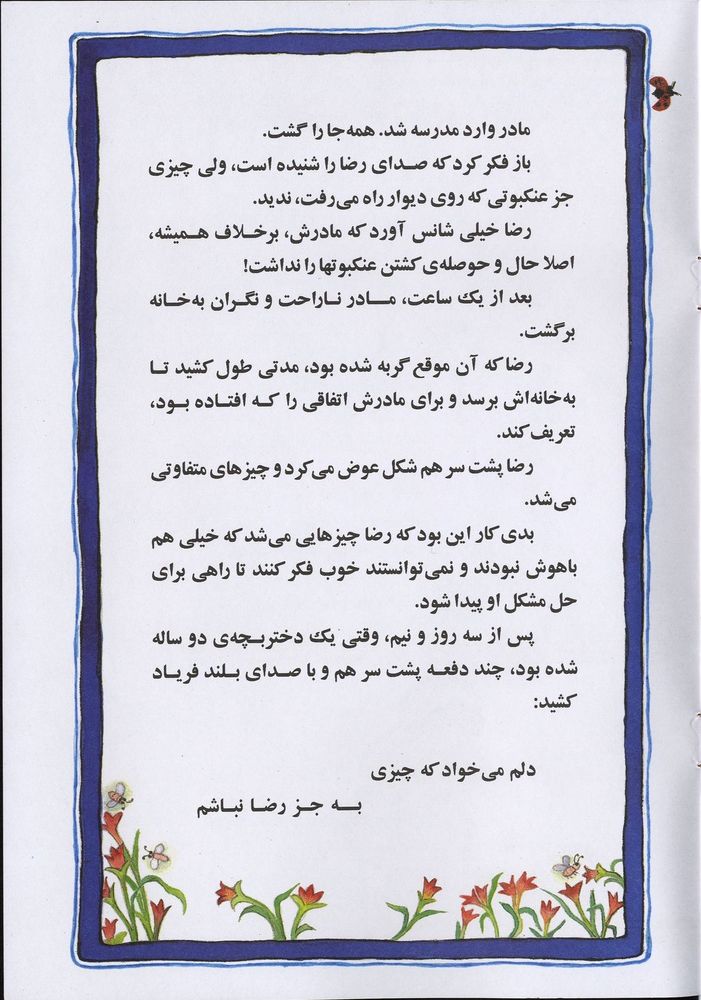 مادر وارد مدرسه شد. همه‌جا را گشت.
باز فکر کرد که صدای رضا را شنیده است، ولی چیزی
جز عنکبوتی که روی دیوار راه می‌رفت، ندید.
رضا خیلی شانس آورد که مادرش، برخلاف همیشه،
اصلا حال و حوصله‌ی کشتن عنکبوتها را نداشت!
بعد از یک ساعت، مادر ناراحت و نگران به‌خانه
برگشت.
رضا که آن موقع گربه شده بود، مدتی طول کشید تا
به‌خانه‌اش برسد و برای مادرش اتفاقی را که افتاده بود،
تعریف کند.
رضا پشت سر هم شکل عوض می‌کرد و چیزهای متفاوتی
می‌شد.
بدی کار این بود که رضا چیزهایی می‌شد که خیلی هم
باهوش نبودند و نمی‌توانستند خوب فکر کنند تا راهی برای
حل مشکل او پیدا شود.
پس از سه روز و نیم، وقتی یک دختربچه‌ی دو ساله
شده بود، چند دفعه پشت سر هم و با صدای بلند فریاد
کشید:
دلم می‌خواد که چیزی
به جز رضا نباشم